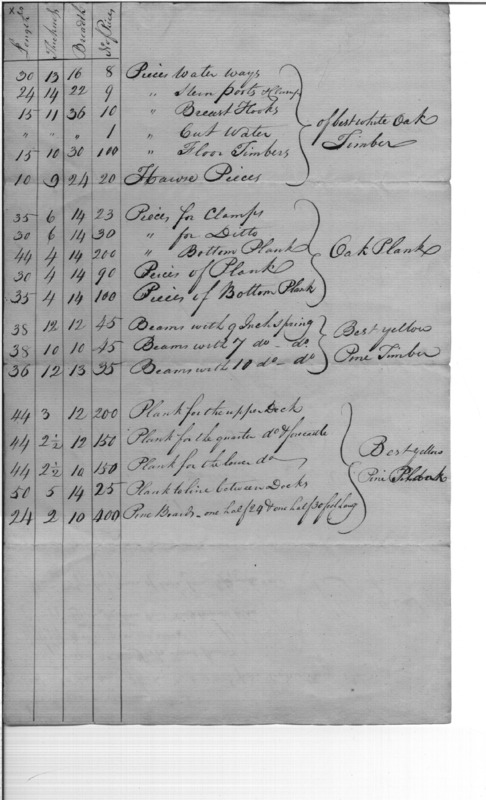 Length Thickness Breadth No of Pieces
30 13 16 8 Pieces Water ways
24 14 22 9 " Stern posts &
15 11 36 10 " Breast Hooks
" " " 1 " Cut Water
15 10 30 100 " Floor Timbers
10 9 24 20 Hawse Pieces
of best white Oak
Timber
35 6 14 23 Pieces for Clamps
30 6 14 30 " for Ditto
44 4 14 200 " Bottom Plank
30 4 14 90 Peices of Plank
35 4 14 100 Peices of Bottom Plank
Oak Plank
38 12 12 45 Beams with 9 Inch spring
38 10 10 45 Beams with 7 do - do
36 12 13 35 Beams with 10 do - do
Best yellow
Pine Timber
44 3 12 200 Plank for the upper Deck
44 2½ 12 150 Plank for the quarter do & forecastle
44 2½ 10 150 Plank for the lower do
50 5 14 25 Plank to line between Decks
24 2 10 400 Pine Boards - one half 24 & one half 30 feet long
Best yellow
Pine